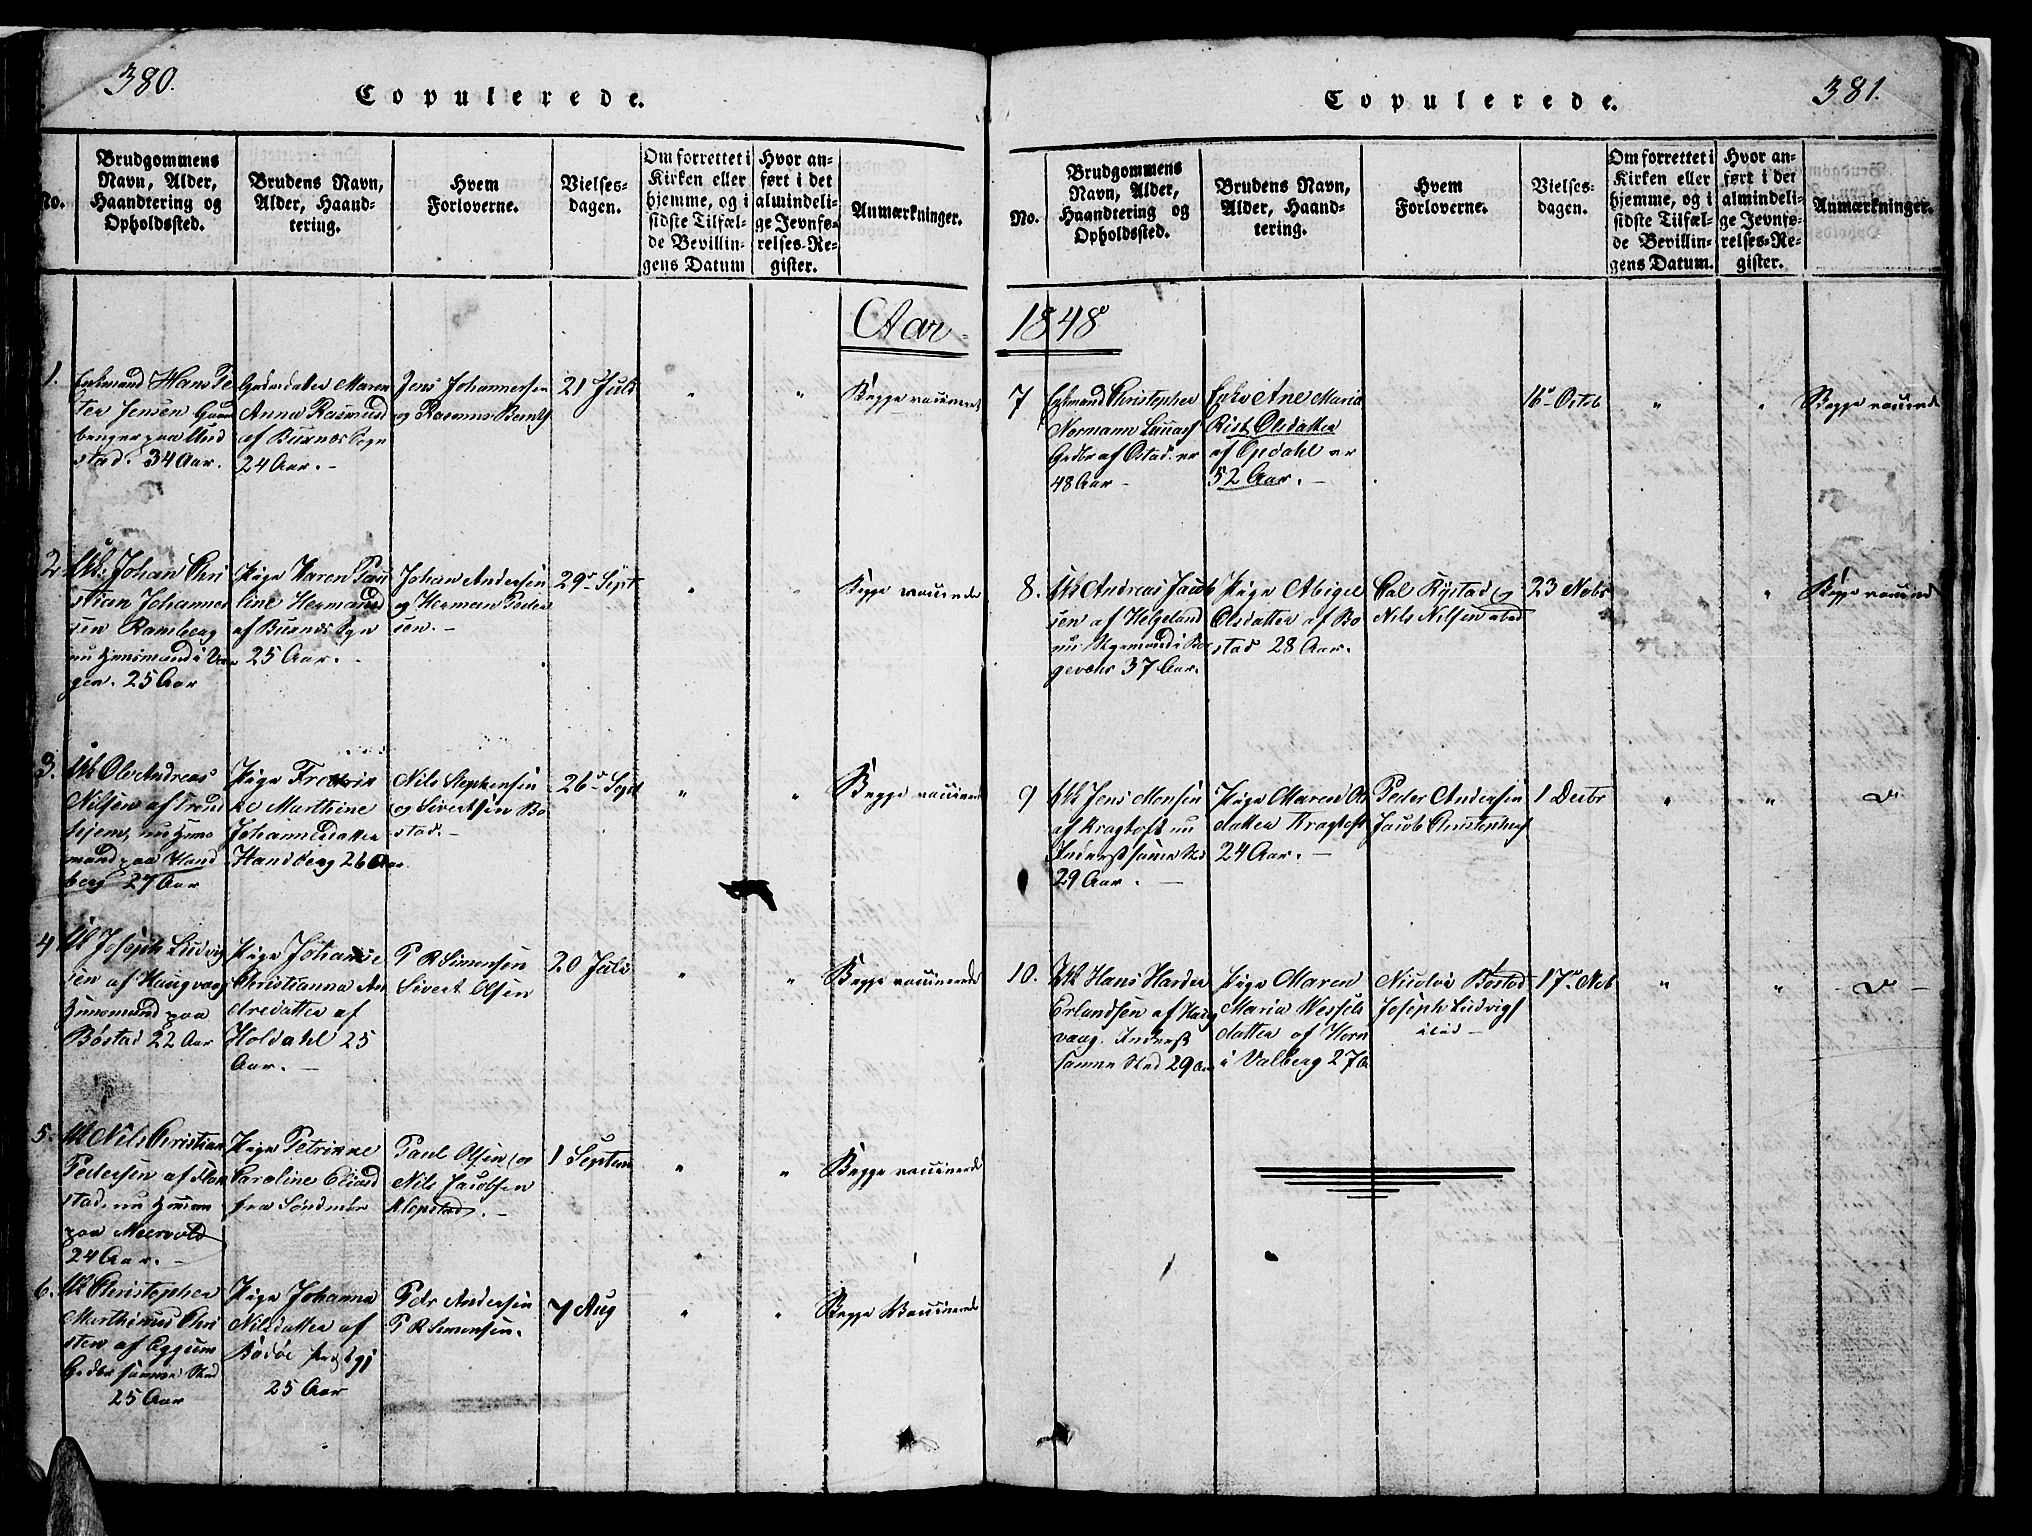 380.
Copulerede.
No.
Brudgommens
Navn, Alder,
Haandtering og
Opholdssted.
Brudens Navn,
Alder, Haand-
tering.
Hvem
Forloverne.
Vielses-
dagen.
Om forrettet i
Kirken eller
hjemme, og i
sidste Tilfæl-
de Bevillin-
gens Datum
Hvor an-
ført i det
almindeli-
ge Jevnfø-
relses-Re-
gister.
Anmærkninger.
Aar
1.
Enkemand Hans Pe
ter Jensen
34 Aar.
Maren
Anna Rasmusd
af Buxnæs Sogn
24 Aar.
Jens Johannesen
og Rasmus Bentsf
21 Juli
Begge vaccineret
2
Uk. Johan Chri
stian Johannes
sen Ramberg
25 Aar
Pige Karen Pau
line Hermansd
af Buxnæs Sogn
25 Aar.
Johan Andersen
og Herman Peder
sen.
29 Sept
Begge vaccinerede
3.
Uk Ole Andreas
Nilsen af Trond
hjem, nu
mand paa Hand
berg 27 Aar
Pige Fredrik
ke Marthine
Johannesdatter
Handberg 26 Aar
Nils Stephensen
og Sivertsen Bo
stad.
26 Sept
Begge vaccinerede
4
Uk Joseph Ludvig
sen af Haugvaag
paa
Bostad 22 Aar
Pige Johanne
Christianna An
dredatter af
Holdahl 25
Aar.
P R Simensen
Sivert Olsen
20 Juli
Begge vaccinerede
5.
Uk Nils Christian
Pedersen af
stad, nu
paa
24 Aar.
Pige Petrikke
Caroline Eliasd
fra Søndmør
Paul Olsen og
Nils Jacobsen
Klopstad.
1 Septem
Begge vaccinerede
6.
Uk Christopher
Marthinus Chri
sten af Eggum
Gaardbr samme Sted
25 Aar
Pige Johanna
Nilsdatter af
Bodøe
25 Aar
Pedr Andersen
P R Simonsen.
7 Aug
Begge Vaccinerede
381.
Copulerede.
No.
Brudgommens
Navn, Alder,
Haandtering og
Opholdssted.
Brudens Navn,
Alder, Haand-
tering.
Hvem
Forloverne.
Vielses-
dagen.
Om forrettet i
Kirken eller
hjemme, og i
sidste Tilfæl-
de Bevillin-
gens Datum.
Hvor an-
ført i det
almindeli-
ge Jevnfø-
relses-Re-
gister.
Anmærkninger.
1848
7
Enkemand Christopher
Normann
af Ostad er
48 Aar
Enke Ane Maria
Rist Olsdatter
af Opdahl er
52 Aar.
16 Octob
Begge vaccinerede
8.
Uk Andreas Jacob
sen af Helgeland
nu
37 Aar.
Pige Abigel
Olsdatter af Bo
stad 28 Aar.
Cal Rystad og
Nils Nilsen
23 Nobr
Begge vaccinerede
9
Uk Jens Monsen
af Kragtoft nu
samme Sted
29 Aar.
Pige Maren Ols
datter Kragtoft
24 Aar.
Peder Andersen
Jacob Christophersf
1 Decbr
10.
Uk Hans Harder
Erlandsen af Haug
vaag.
samme Sted 29 Aar
Pige Maren
Maria Wessels
datter af Horn
i Valberg 27 Aar
Nicolai Bostad
Joseph Ludvigsf
ibid
17 Nob